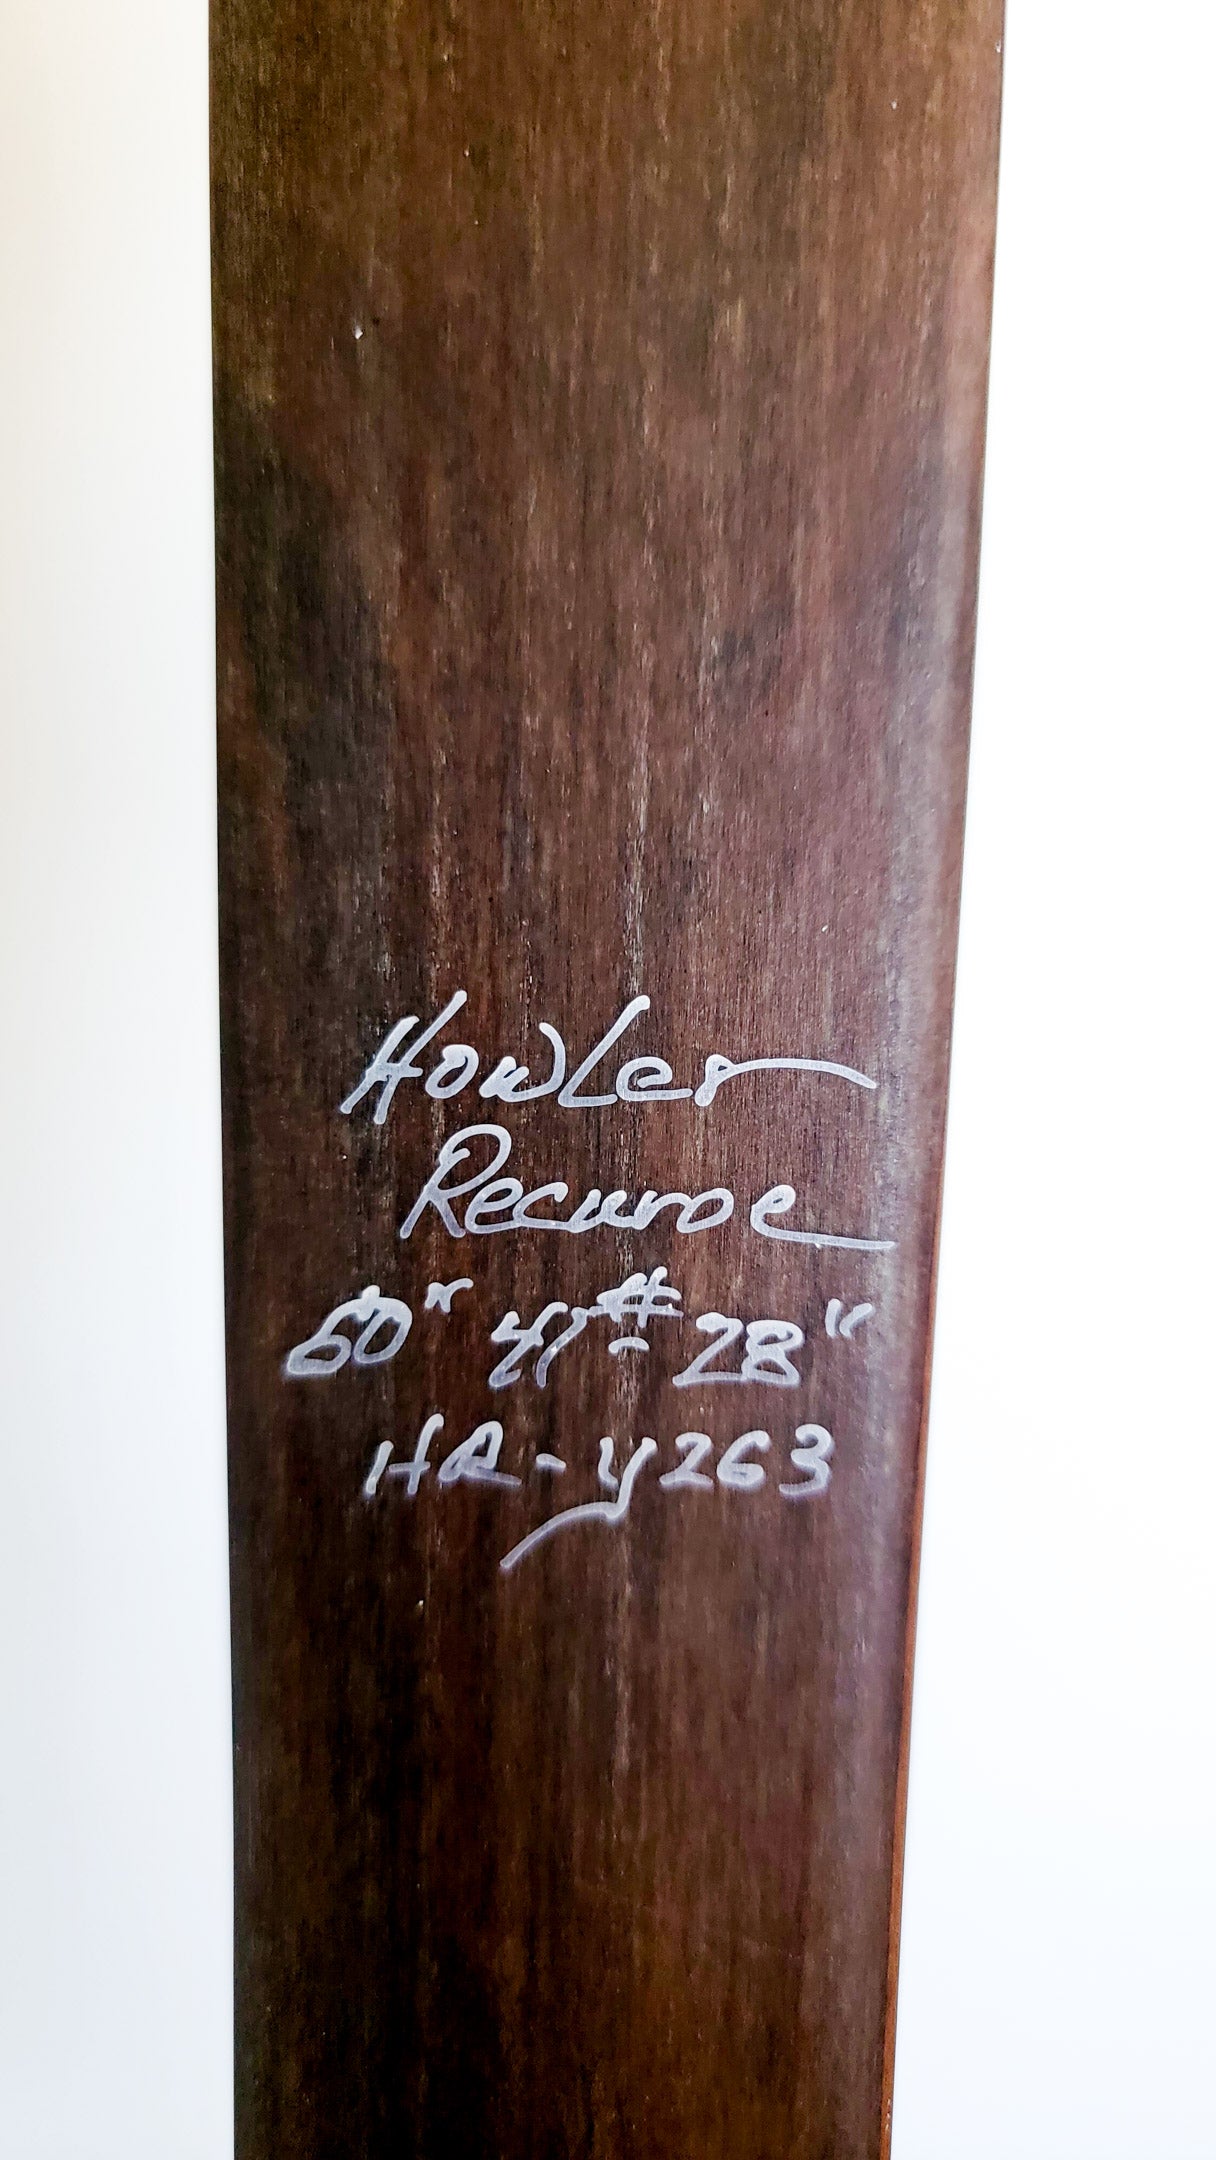 Howler
Recurve
60" 47# 28"
HR-y263